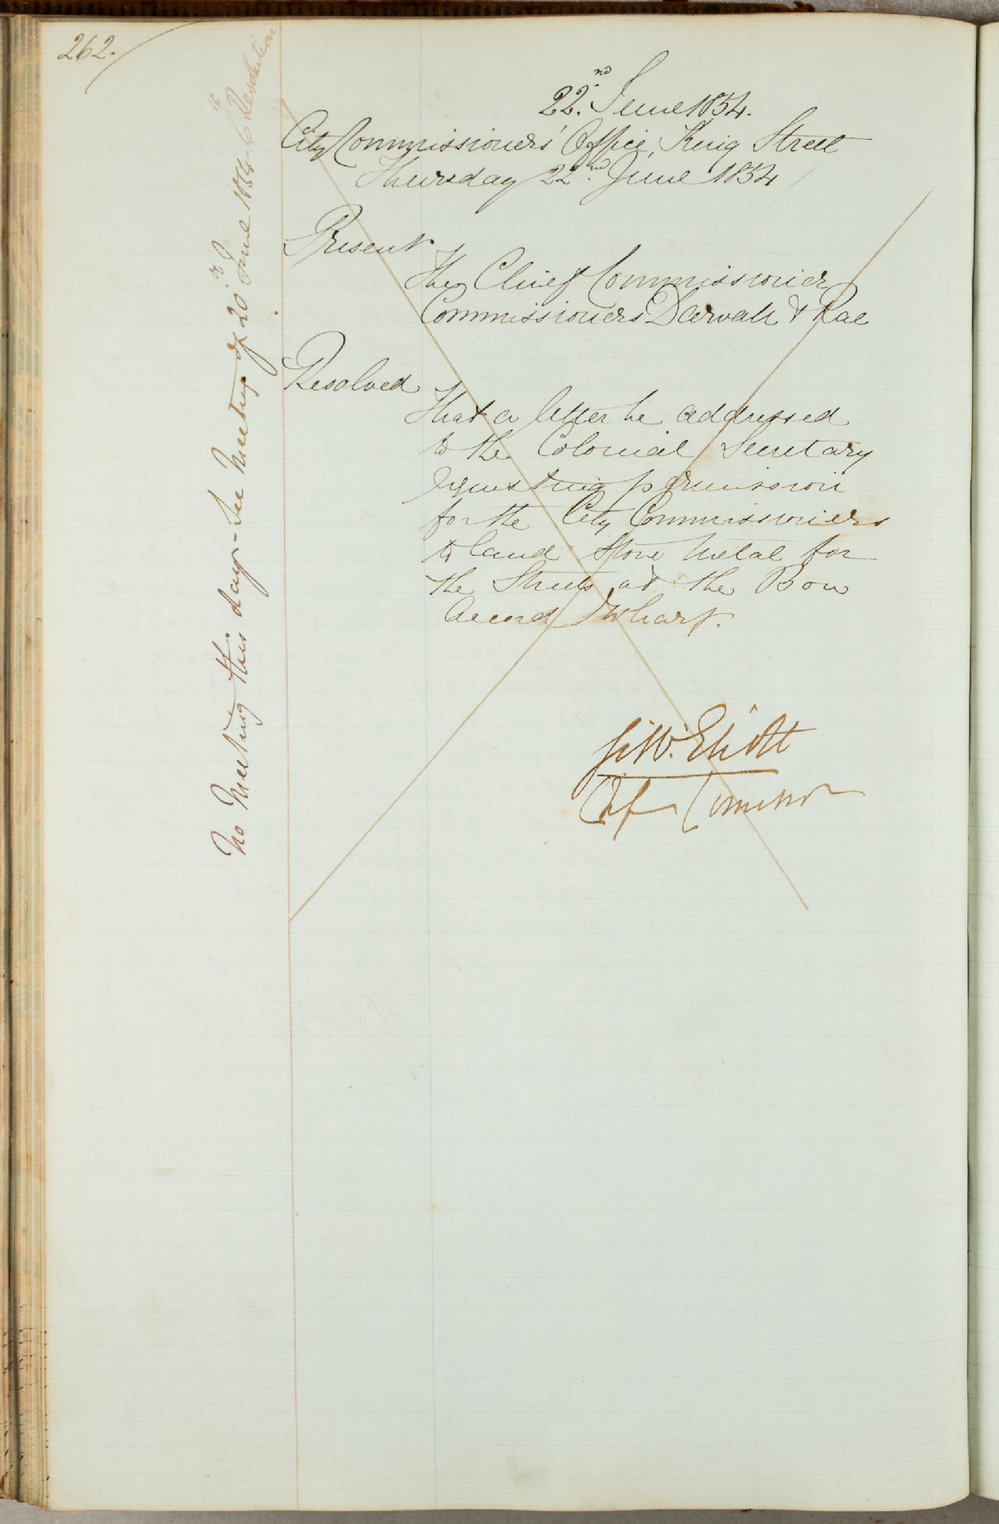 262.
22.nd June 1854.
City Commissioners' Office, King Street
Thursday 22.nd June 1854
Present
The Chief Commissioner
Commissioners Darvall & Rae
Resolved
That a letter be addressed
to the Colonial Secretary
requesting permission
for the City Commissioners
to land Stone Metal for
the Streets at the Bon
Accord Wharf.
G. W. Eliott
Chf Commr
No Meeting this day - See Meeting of 20th June 1854. 6th Resolution